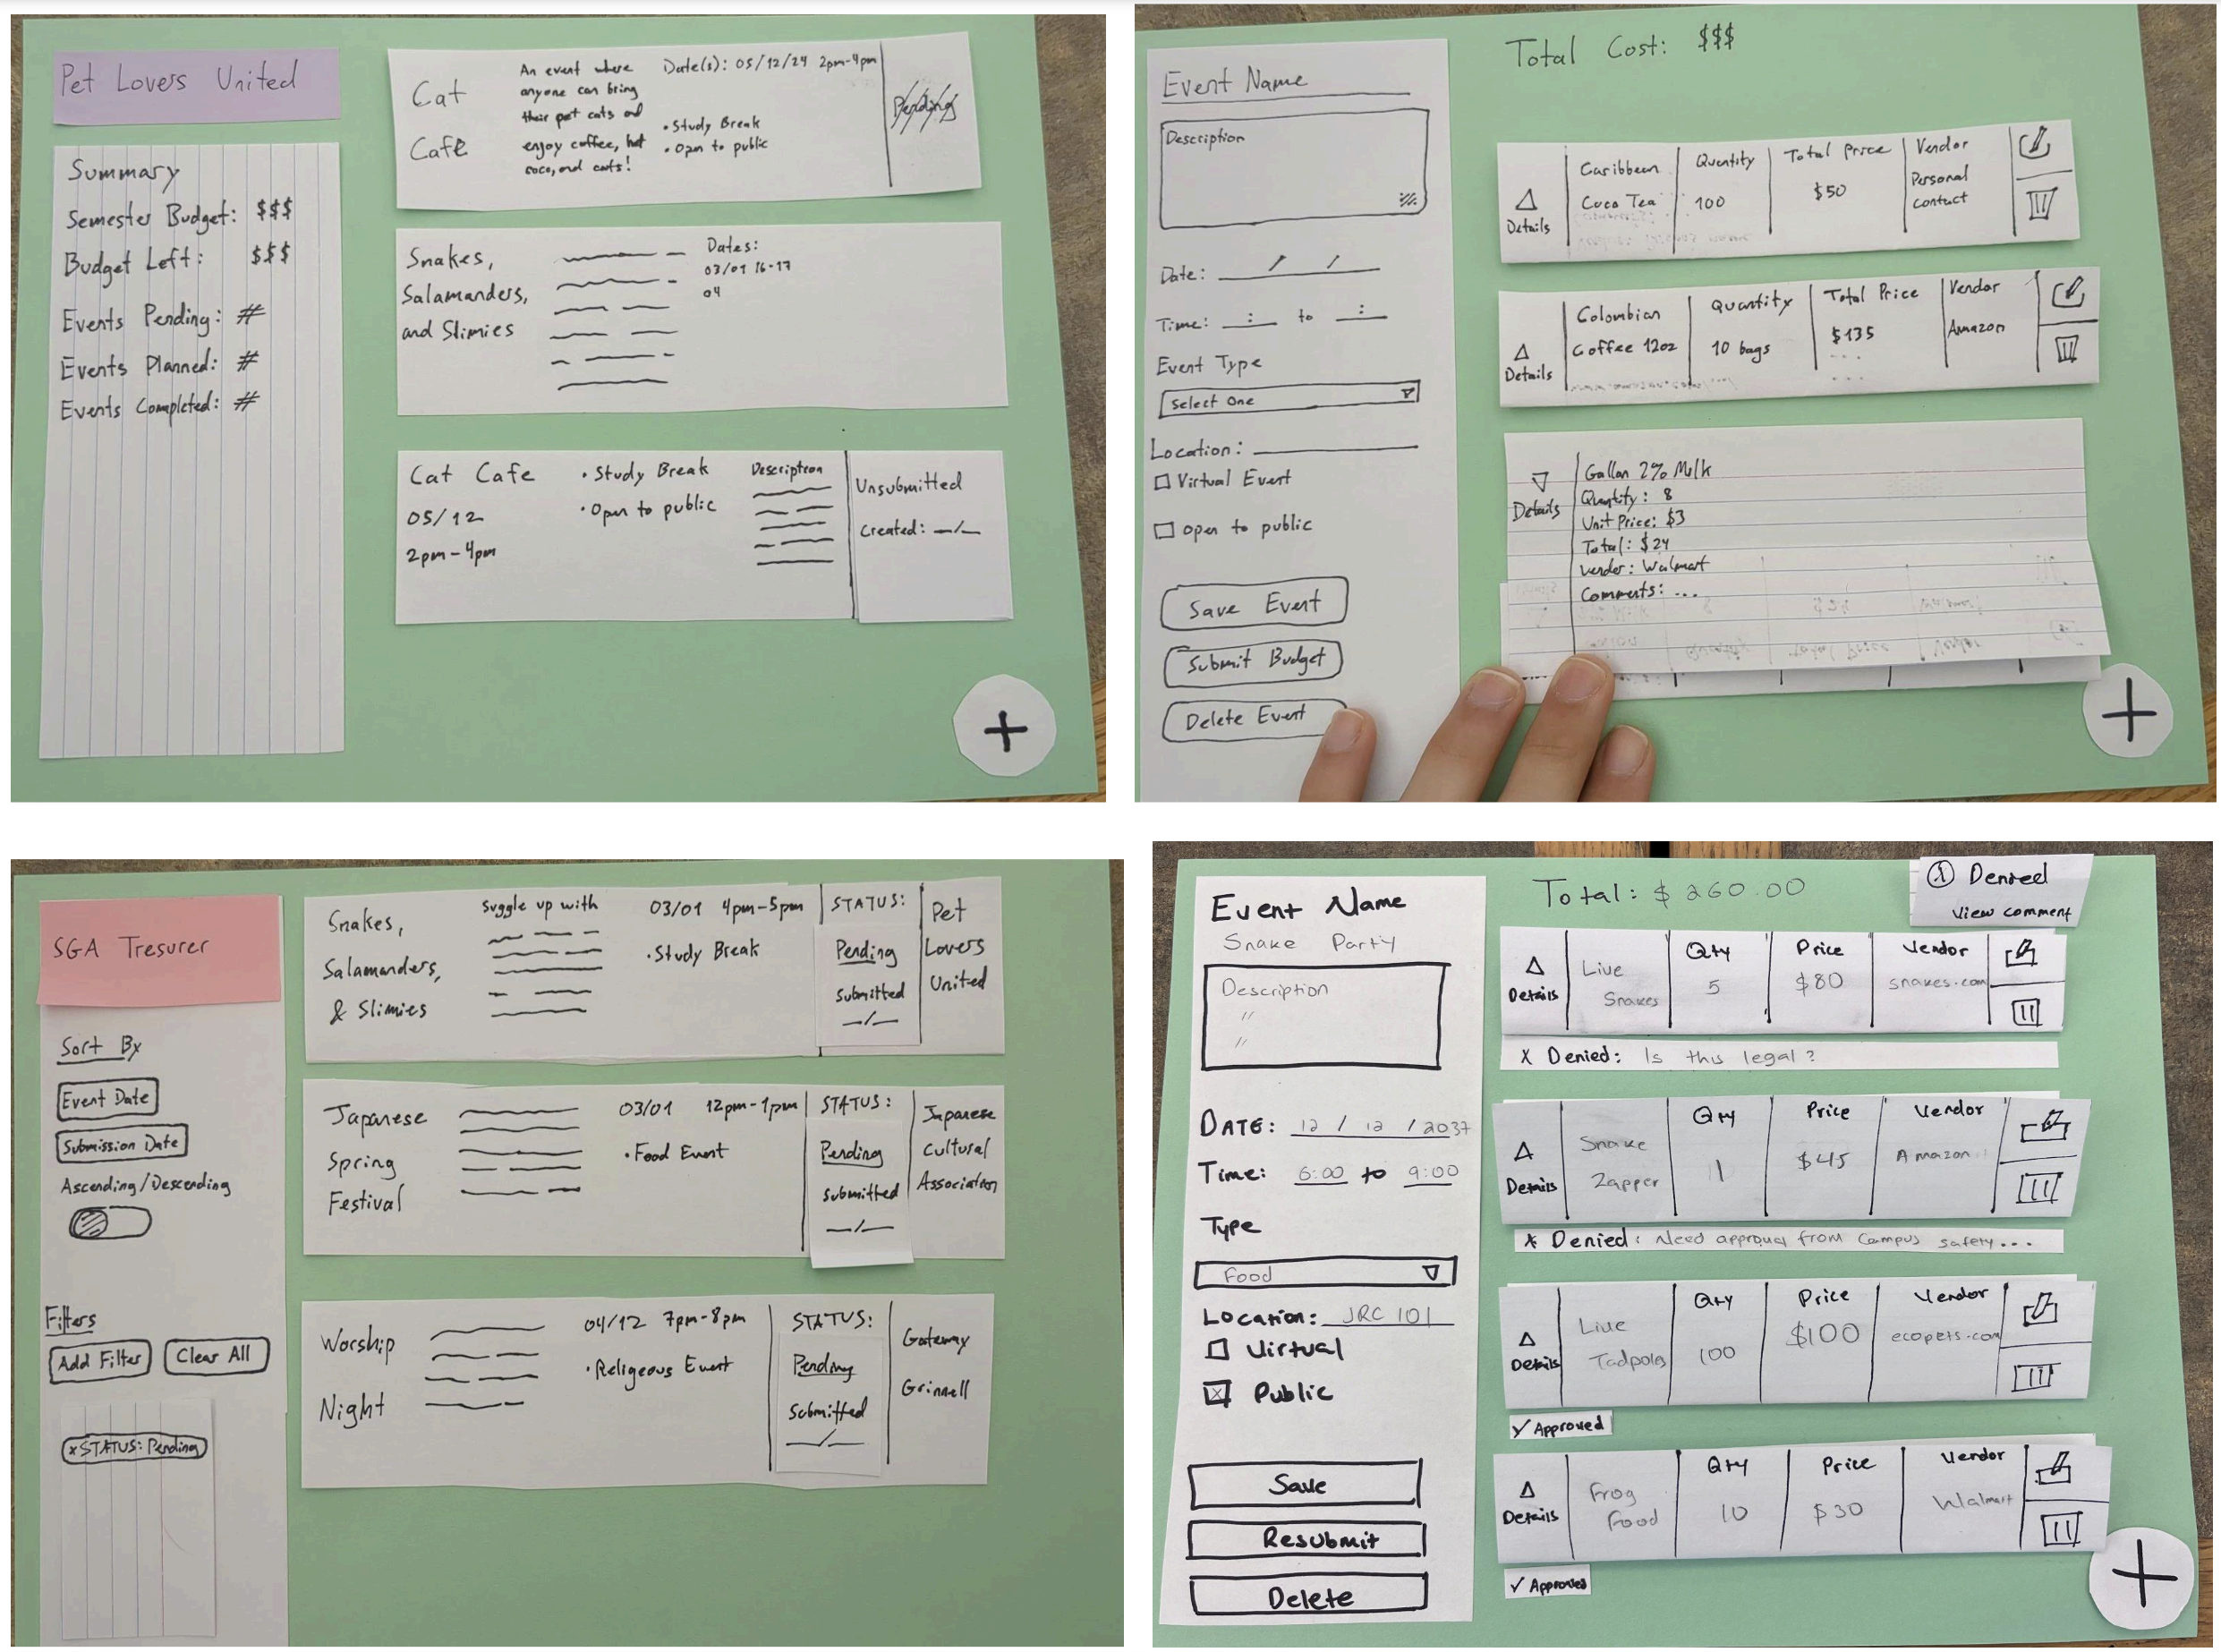 Pet Lovers United
Summary
Semester Budget: $$$
Budget Left: $$$
Events Pending: #
Events Planned: #
Events Completed: #
Cat
Cafe
An event where
anyone can bring
their pet cats and
enjoy coffee, hot
coco, and cats!
Date(s): 05/12/24 2pm-4pm
• Study Break
• Open to public
Pending
Snakes,
Salamanders,
and Slimies
Dates:
03/01 16-17
04
Cat Cafe
05/12
2pm-4pm
• Study Break
• Open to public
Description
Unsubmitted
Created: _/_
+
Event Name
Description
Date: / /
Time: : to :
Event Type
Select One
Location:
Virtual Event
Open to public
Save Event
Submit Budget
Delete Event
Total Cost: $$$
Details
Caribbean
Coco Tea
Quantity
100
Total Price
$50
Vendor
Personal
Contact
Details
Colombian
Coffee 12oz
Quantity
10 bags
Total Price
$135
Vendor
Amazon
Details
Gallon 2% Milk
Quantity: 8
Unit Price: $3
Total: $24
Vender: Walmart
Comments: ...
+
SGA Tresurer
Sort By
Event Date
Submission Date
Ascending/Descending
Filters
Add Filter
Clear All
x STATUS: Pending
Snakes,
Salamanders,
& Slimies
Suggle up with
03/01 4pm-5pm
• Study Break
STATUS:
Pending
Submitted
_/_
Pet
Lovers
United
Japanese
Spring
Festival
03/01 12pm-1pm
• Food Event
STATUS:
Pending
Submitted
_/_
Japanese
Cultural
Association
Worship
Night
04/12 7pm-8pm
• Religeous Event
STATUS:
Pending
Submitted
_/_
Gateway
Grinnell
Event Name
Snake Party
Description
"
"
DATE: 12 / 12 / 2037
Time: 6:00 to 9:00
Type
Food
Location: JRC 101
Virtual
Public
Save
Resubmit
Delete
Total: $ 260.00
Denied
View comment
Details
Live
Snakes
Qty
5
Price
$80
Vendor
snakes.com
X Denied: Is this legal?
Details
Snake
Zapper
Qty
1
Price
$45
Vendor
Amazon
X Denied: Need approval from Campus safety...
Details
Live
Tadpoles
Qty
100
Price
$100
Vendor
ecopets.com
✓ Approved
Details
Frog
Food
Qty
10
Price
$30
Vendor
Walmart
✓ Approved
+